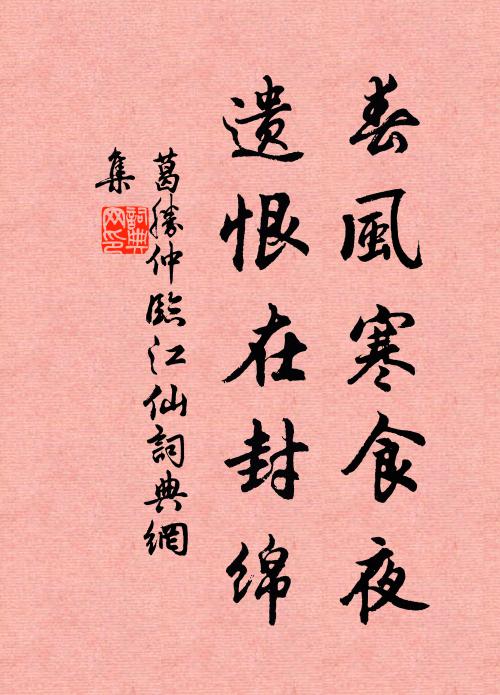 春風寒食夜
遗恨在封绵
葛勝仲臨江仙詞典網
集
詞典网印